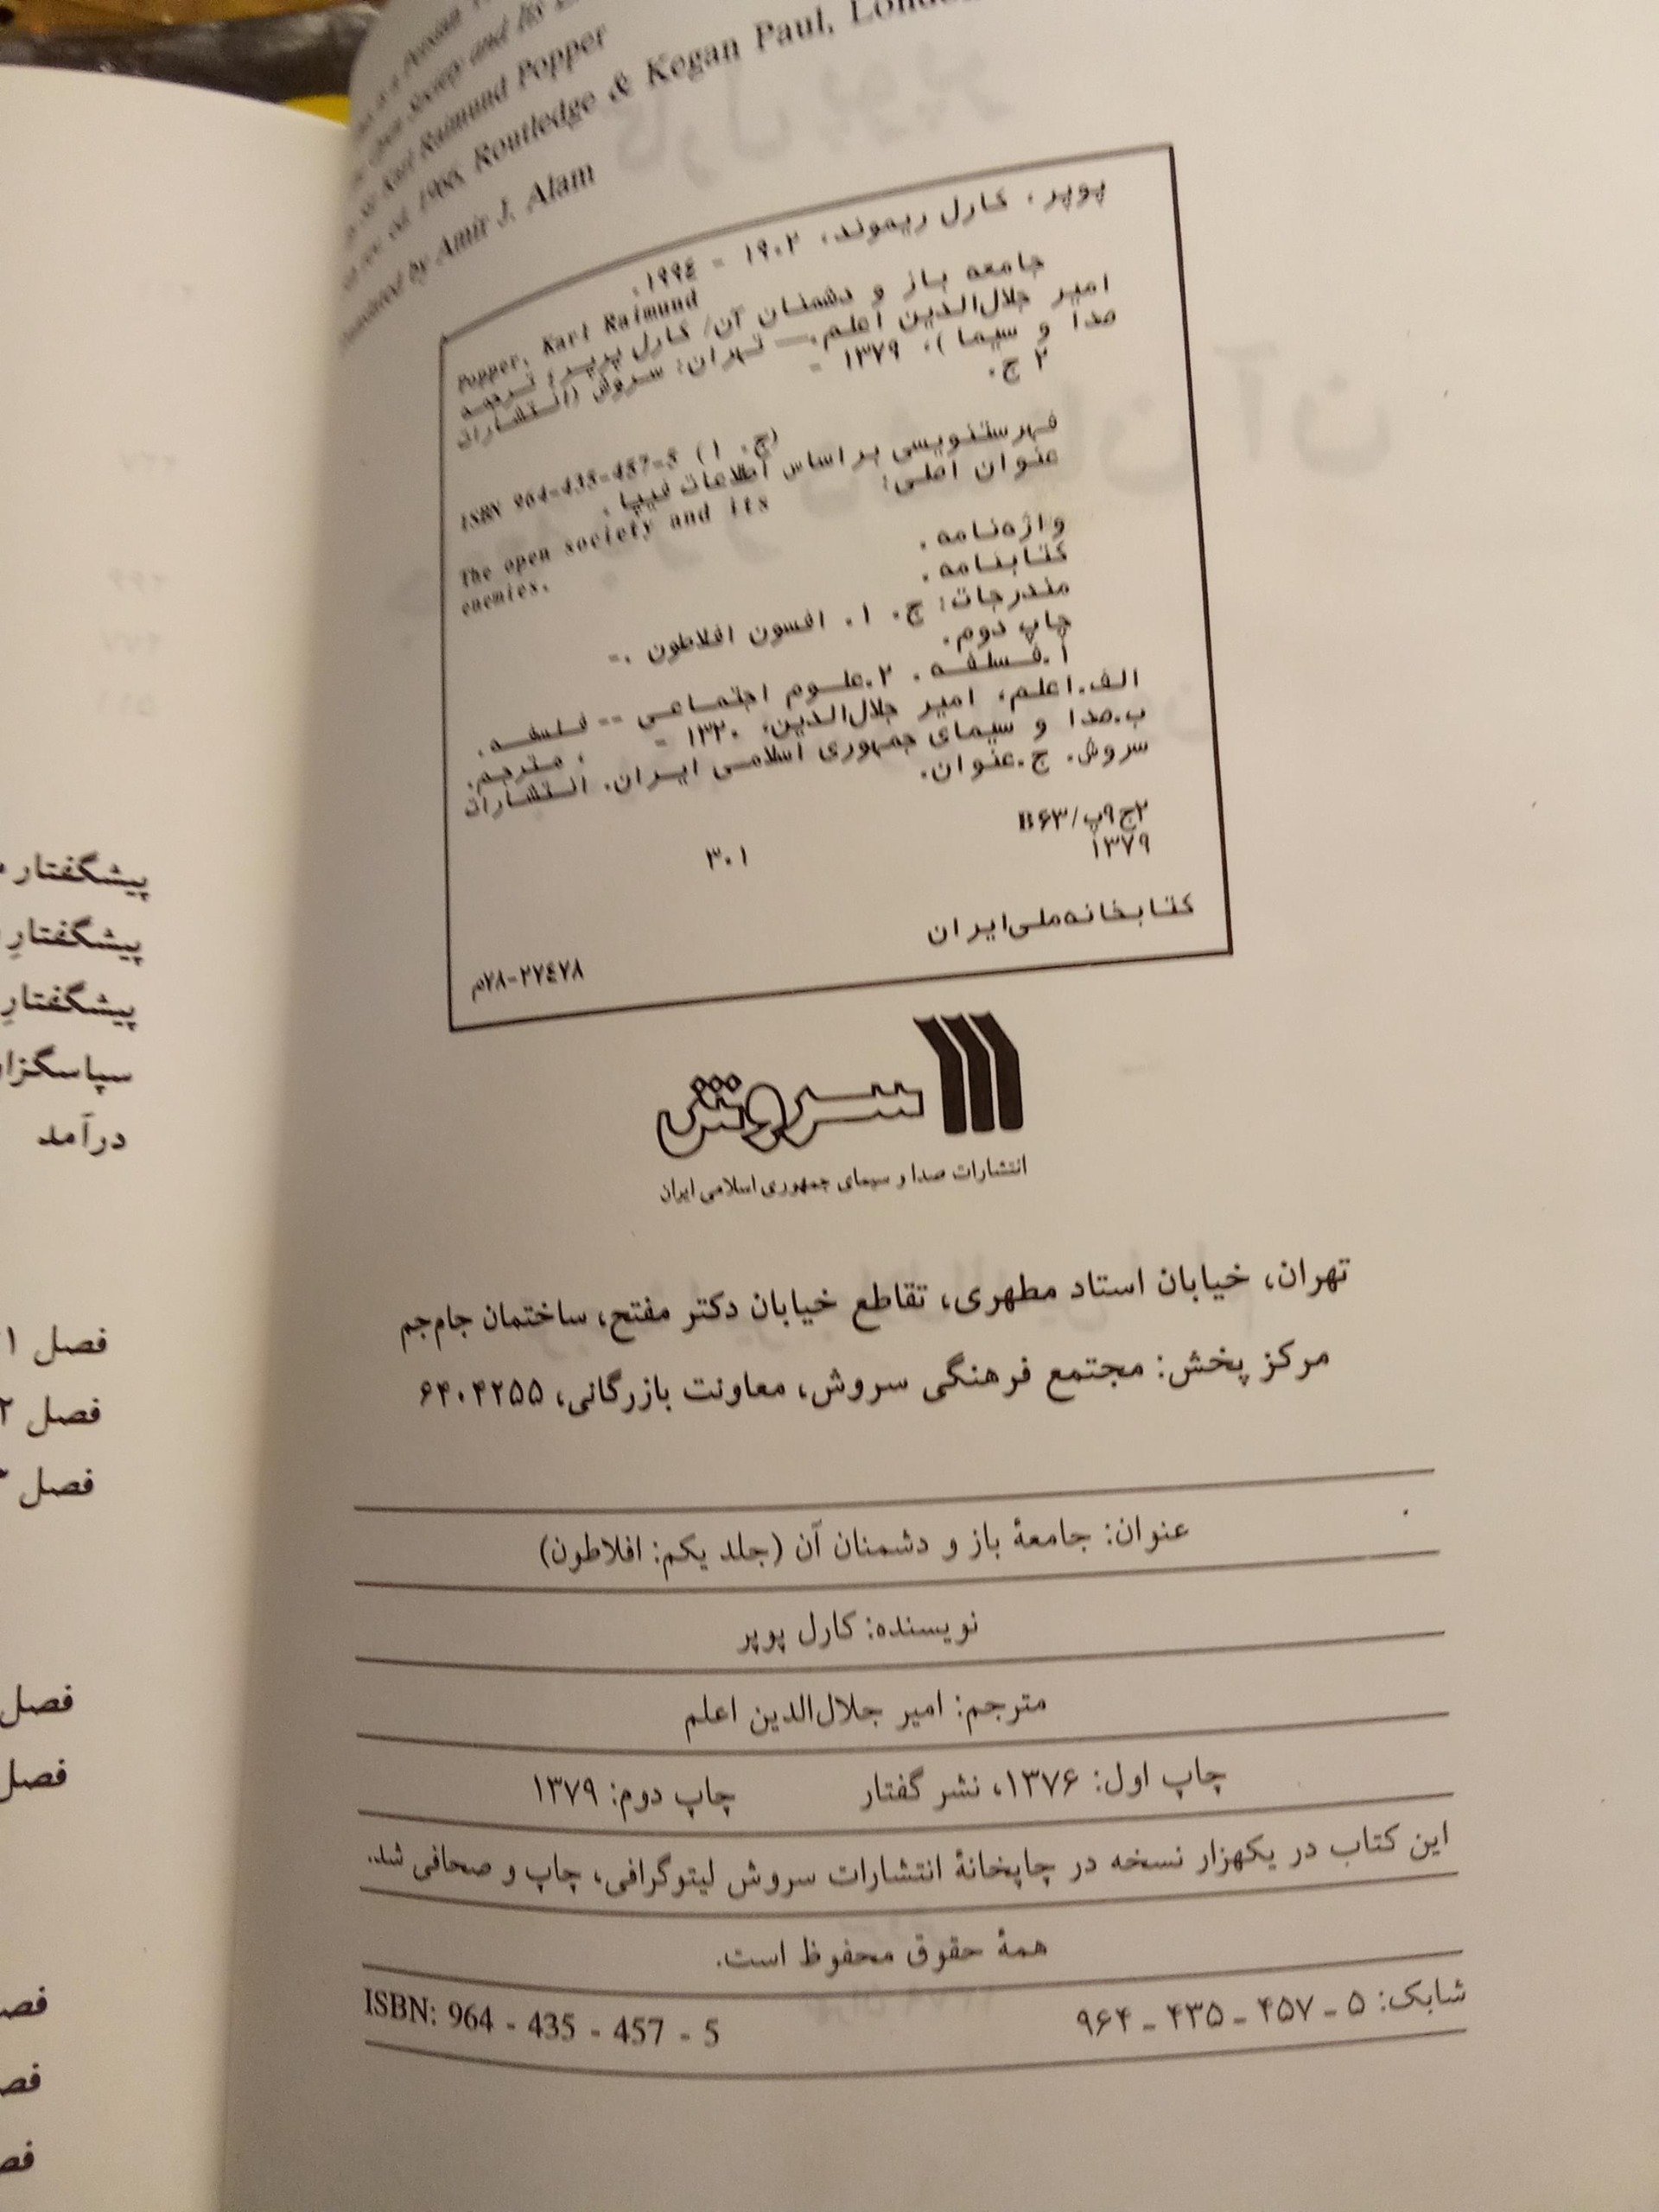 Open Society and Its
Karl Raimund Popper
1966, Routledge & Kegan Paul, London
by Amir J. Alam
پوپر، کارل ریموند، ۱۹۰۲ - ۱۹۹٤.
Popper, Karl Raimund
جامعه باز و دشمنان آن/ کارل پوپر؛ ترجمه
امیر جلال‌الدین اعلم.— تهران: سروش (انتشارات
صدا و سیما)، ۱۳۷۹ -
۲ ج.
ISBN 964-435-457-5 (ج. ۱)
فهرستنویسی براساس اطلاعات فیپا.
عنوان اصلی: The open society and its
enemies.
واژه‌نامه.
کتابنامه.
مندرجات: ج. ۱. افسون افلاطون .-
چاپ دوم.
۱.فلسفه. ۲.علوم اجتماعی -- فلسفه.
الف.اعلم، امیر جلال‌الدین، ۱۳۲۰ - ، مترجم.
ب.صدا و سیمای جمهوری اسلامی ایران. انتشارات
سروش. ج.عنوان.
۲ج۹پ/B۶۳
۳۰۱
۱۳۷۹
کتابخانه‌ملی‌ایران
۲۷٤۷۸-۷۸م
سروش
انتشارات صدا و سیمای جمهوری اسلامی ایران
تهران، خیابان استاد مطهری، تقاطع خیابان دکتر مفتح، ساختمان جام‌جم
مرکز پخش: مجتمع فرهنگی سروش، معاونت بازرگانی، ۶۴۰۴۲۵۵
عنوان: جامعهٔ باز و دشمنان آن (جلد یکم: افلاطون)
نویسنده: کارل پوپر
مترجم: امیر جلال‌الدین اعلم
چاپ اول: ۱۳۷۶، نشر گفتار چاپ دوم: ۱۳۷۹
این کتاب در یکهزار نسخه در چاپخانهٔ انتشارات سروش لیتوگرافی، چاپ و صحافی شد.
همهٔ حقوق محفوظ است.
شابک: ۵ ـ ۴۵۷ ـ ۴۳۵ ـ ۹۶۴
ISBN: 964 - 435 - 457 - 5
پیشگفتار
پیشگفتارِ
پیشگفتارِ
درآمد
فصل ۱
فصل ۲
فصل
فصل
فصل